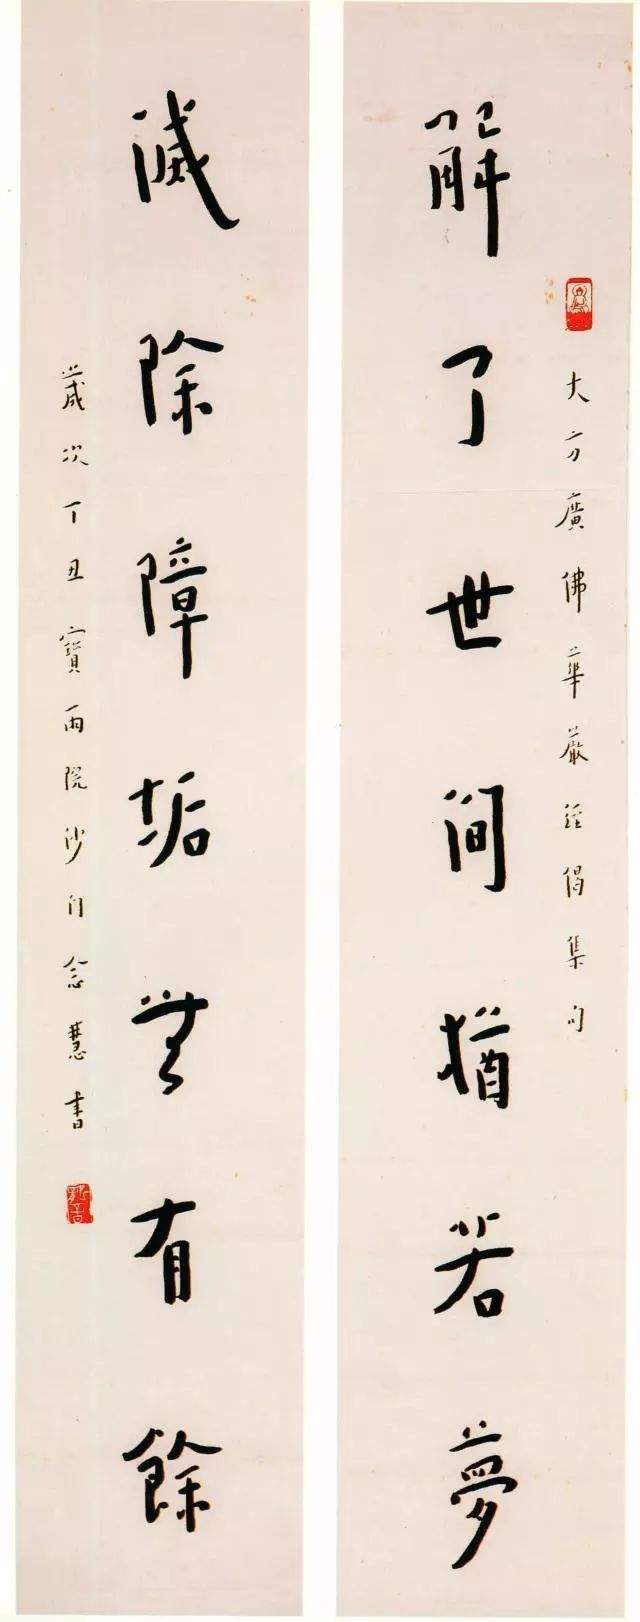 大方廣佛華嚴經偈集句
解了世間猶若夢
滅除障垢無有餘
歲次丁丑寶雨院沙門念慧書
弘一